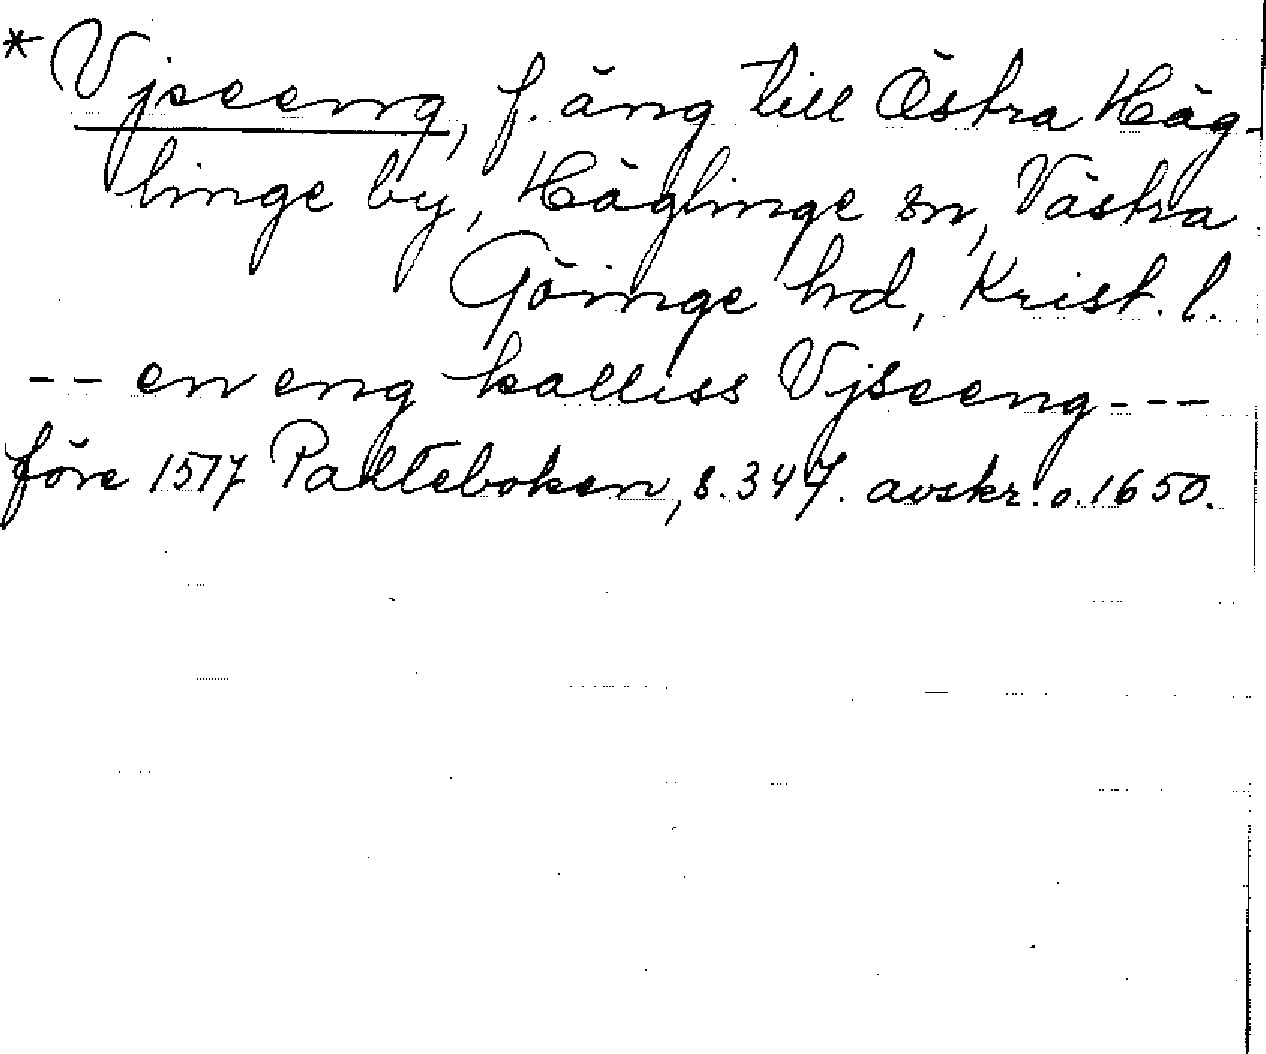 * Vjseeng, f. äng till Östra Häg-
linge by, Häglinge sn, Västra
Göinge hd, Krist. l.
-- en eng kalliss Vjseeng ---
före 1517 Palteboken, s. 347. avskr. o. 1650.